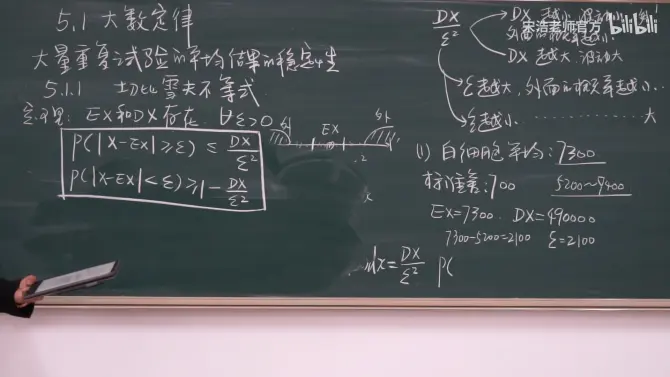 5.1 大数定律
大量重复试验的平均结果的稳定性
5.1.1 切比雪夫不等式.
定理: EX和DX存在. ∀ε>0
P(|X-EX|≥ε) ≤ DX/ε²
P(|X-EX|<ε) ≥ 1- DX/ε²
外 EX 外
DX/ε²
DX 越小
外面的概率越小
DX 越大.波动大
ε越大,外面的概率越小..
ε越小. ............ 大
(1) 白细胞平均:7300
标准差:700 5200~9400
EX=7300. DX=490000
7300-5200=2100 ε=2100
dx= DX/ε² P(
宋浩老师官方 bilibili